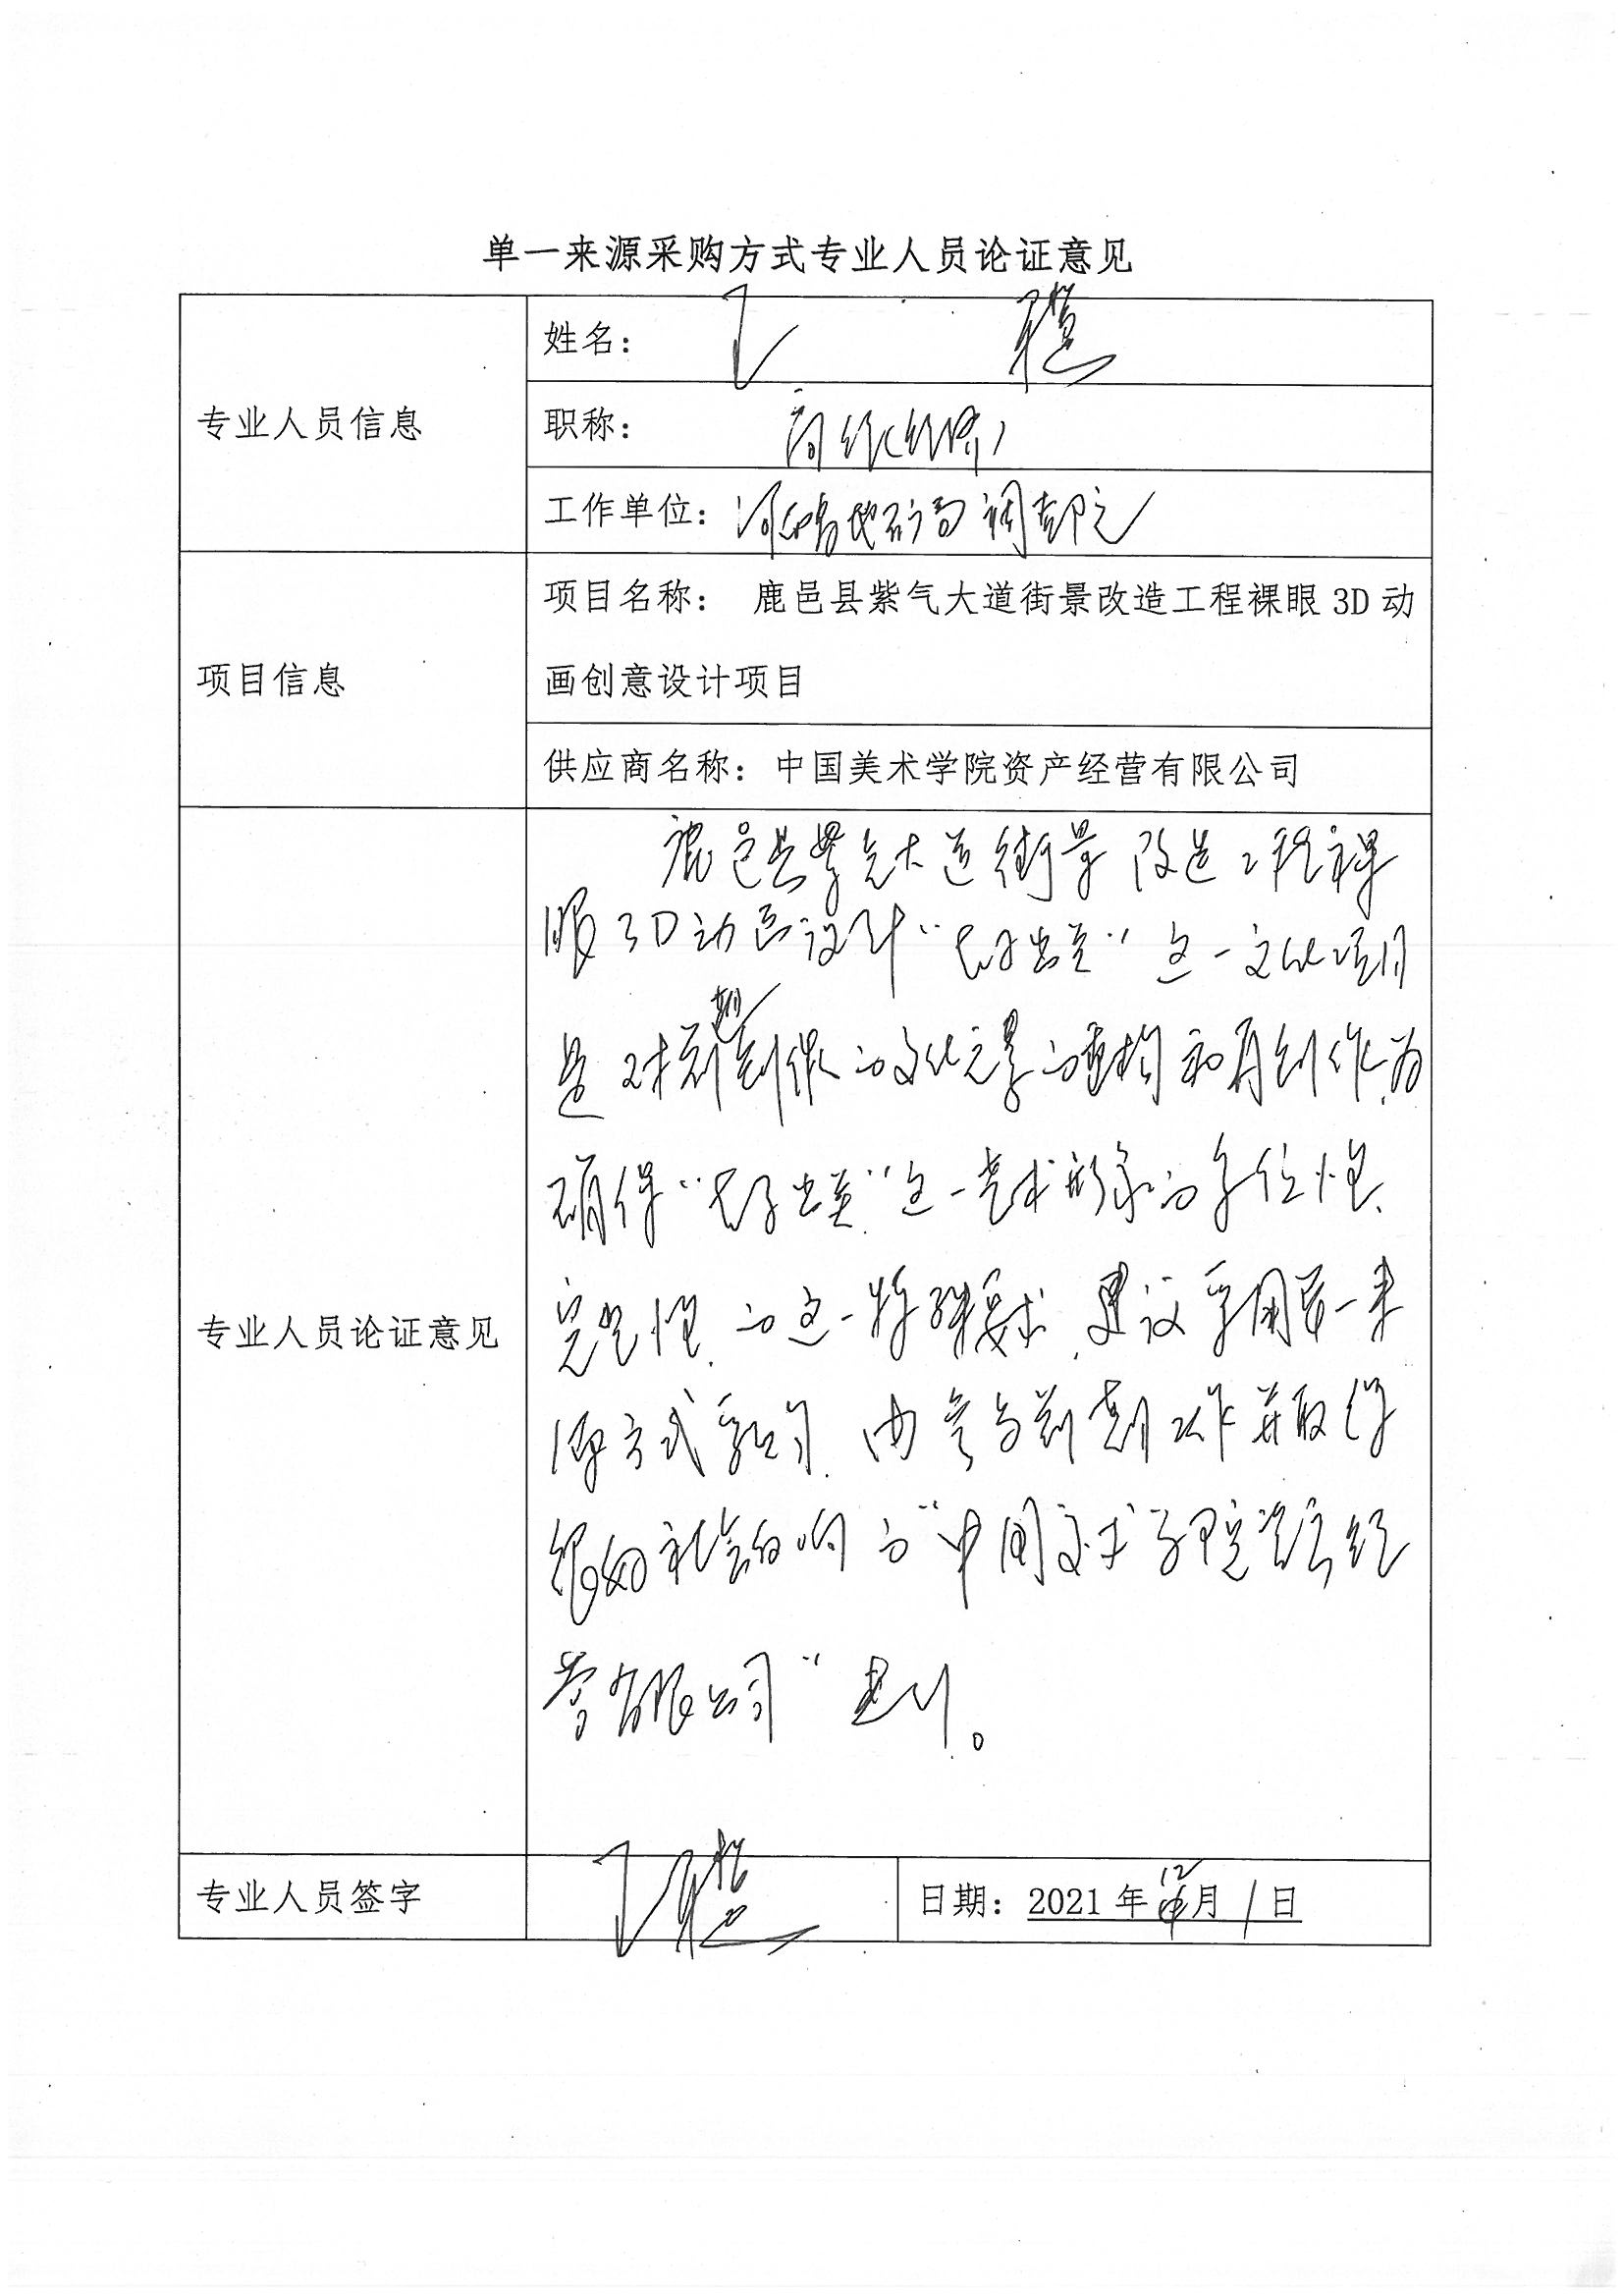 单一来源采购方式专业人员论证意见
专业人员信息
姓名：
职称：
工作单位：河南省地矿局
项目信息
项目名称： 鹿邑县紫气大道街景改造工程裸眼 3D 动
画创意设计项目
供应商名称：中国美术学院资产经营有限公司
专业人员论证意见
鹿邑县紫气大道街景改造工程裸
眼3D动画设计“老子出关”这一文化项目
是对前期创作的文化元素的重构和再创作，为
确保“老子出关”这一艺术形象的
完整性的这一特殊要求，建议采用单一来
源方式采购，由参与前期工作并取得
很好社会影响的“中国美术学院资产经
营有限公司”进行。
专业人员签字
日期：2021 年 12 月 1 日